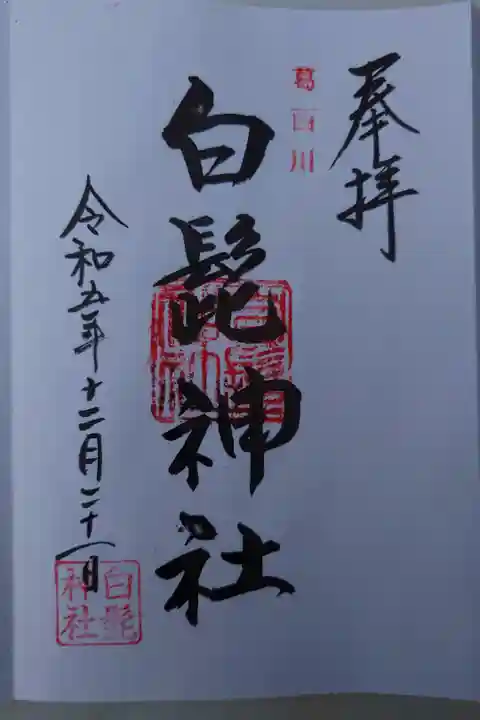 奉拝
葛西川
白髭神社
令和五年十二月二十一日
白髭
神社